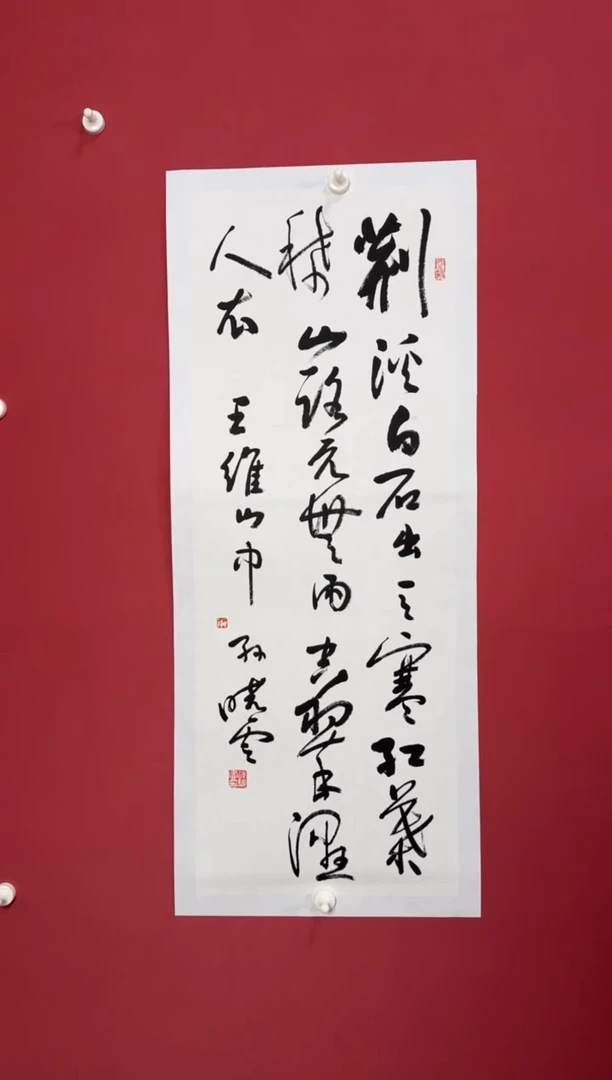 荆溪白石出天寒紅葉
稀山路元無雨空翠濕
人衣 王維山中 孫曉雲